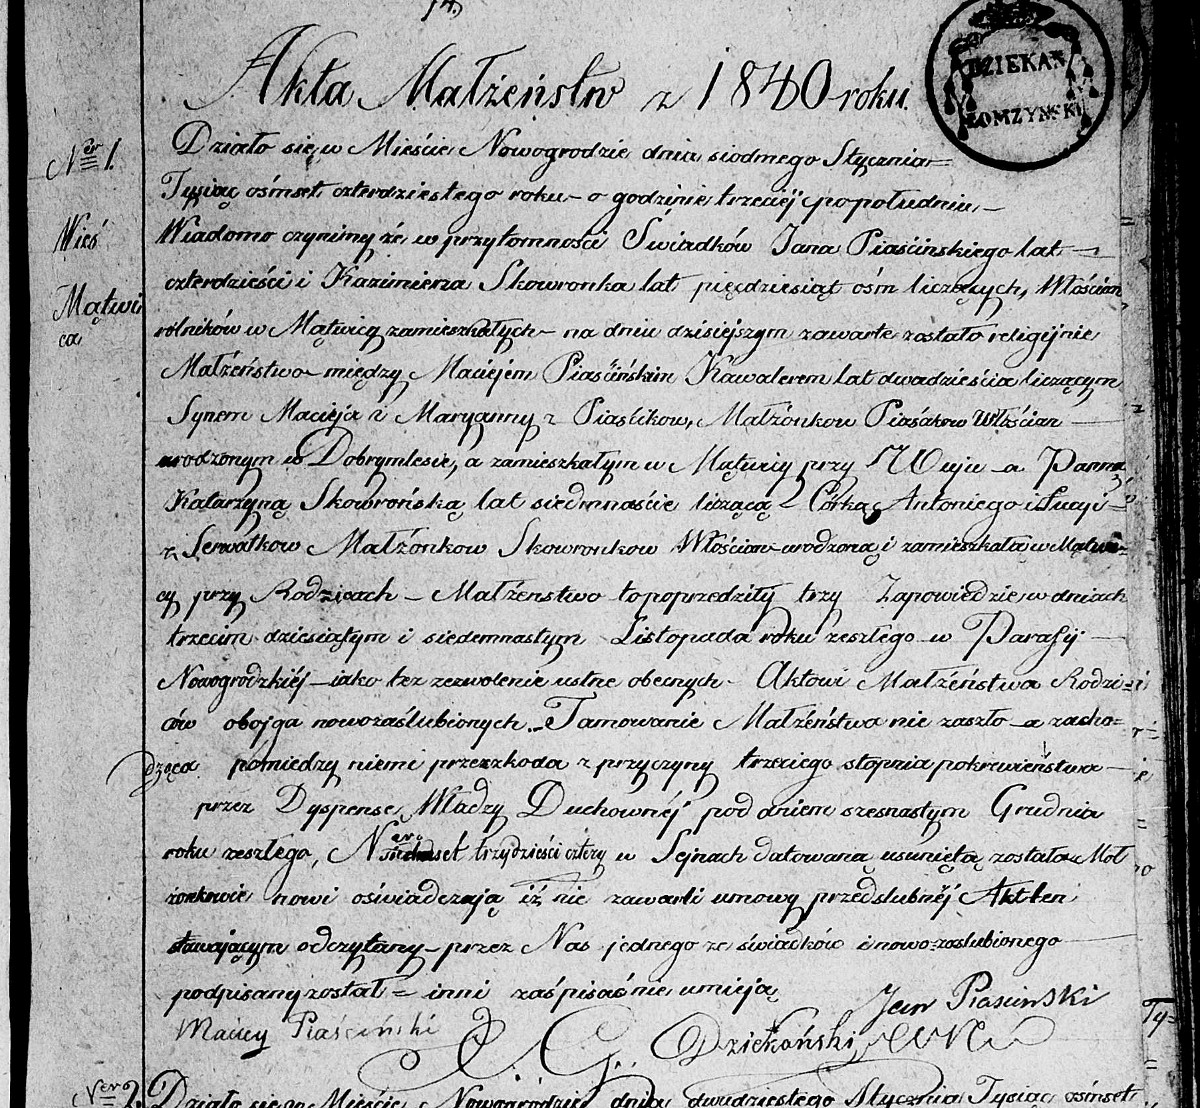 14.
Akta Małżeństw z 1840 roku.
DZIEKAN
ŁOMZYNSKI
Ner 1.
Wieś
Mątwi
ca
Działo się w Mieście Nowogrodzie dnia siodmego Stycznia
Tysiąc ośmset czterdziestego roku o godzinie trzeciej popołudniu
Wiadomo czynimy że w przytomności Świadków Jana Piaścińskiego lat
czterdzieści i Kazimierza Skowronka lat pięćdziesiąt ośm liczących, Włościan
rolników w Mątwicy zamieszkałych na dniu dzisiejszym zawarte zostało religijnie
Małżeństwo między Maciejem Piaścińskim Kawalerem lat dwadzieścia liczącym
Synem Macieja i Maryanny z Małżonkow Włościan
urodzonym w Dobrymlesie, a zamieszkałym w Mątwicy przy Wuju a Panną
Katarzyną Skowrońską lat siedmnaście liczącą Córką Antoniego i Łucyi
z Serwatkow Małżonkow Skowronkow Włościan urodzoną i zamieszkałą w Mątwi-
cy przy Rodzicach Małżenstwo to poprzedziły trzy Zapowiedzie w dniach
trzecim dziesiątym i siedemnastym Listopada roku zeszłego w Parafij
Nowogrodzkiéj jako też zezwolenie ustne obecnych Aktowi Małżeństwa Rodzi-
ców obojga nowozaślubionych. Tamowanie Małżeństwa nie zaszło a zacho-
dząca pomiędzy niemi przeszkoda z przyczyny trzeciego stopnia pokrewieństwa
przez Dyspensę Władzy Duchownéj pod dniem szesnastym Grudnia
roku zeszłego, Nero trzydzieści cztery w Sejnach datowaną usuniętą została Moł
żonkowie nowi oświadczają iż nie zawarli umowy przedslubnéj Akt ten
stawającym odczytany przez Nas jednego ze świadków i nowo zaslubionego
podpisany został = inni zaś pisać nie umieją
Jan Piascinski
Maciey Piasciński
X. G. Dziekoński
Ner 2. Działo się w Mieście Nowogrodzie dnia dwudziestego Stycznia Tysiąc ośmset